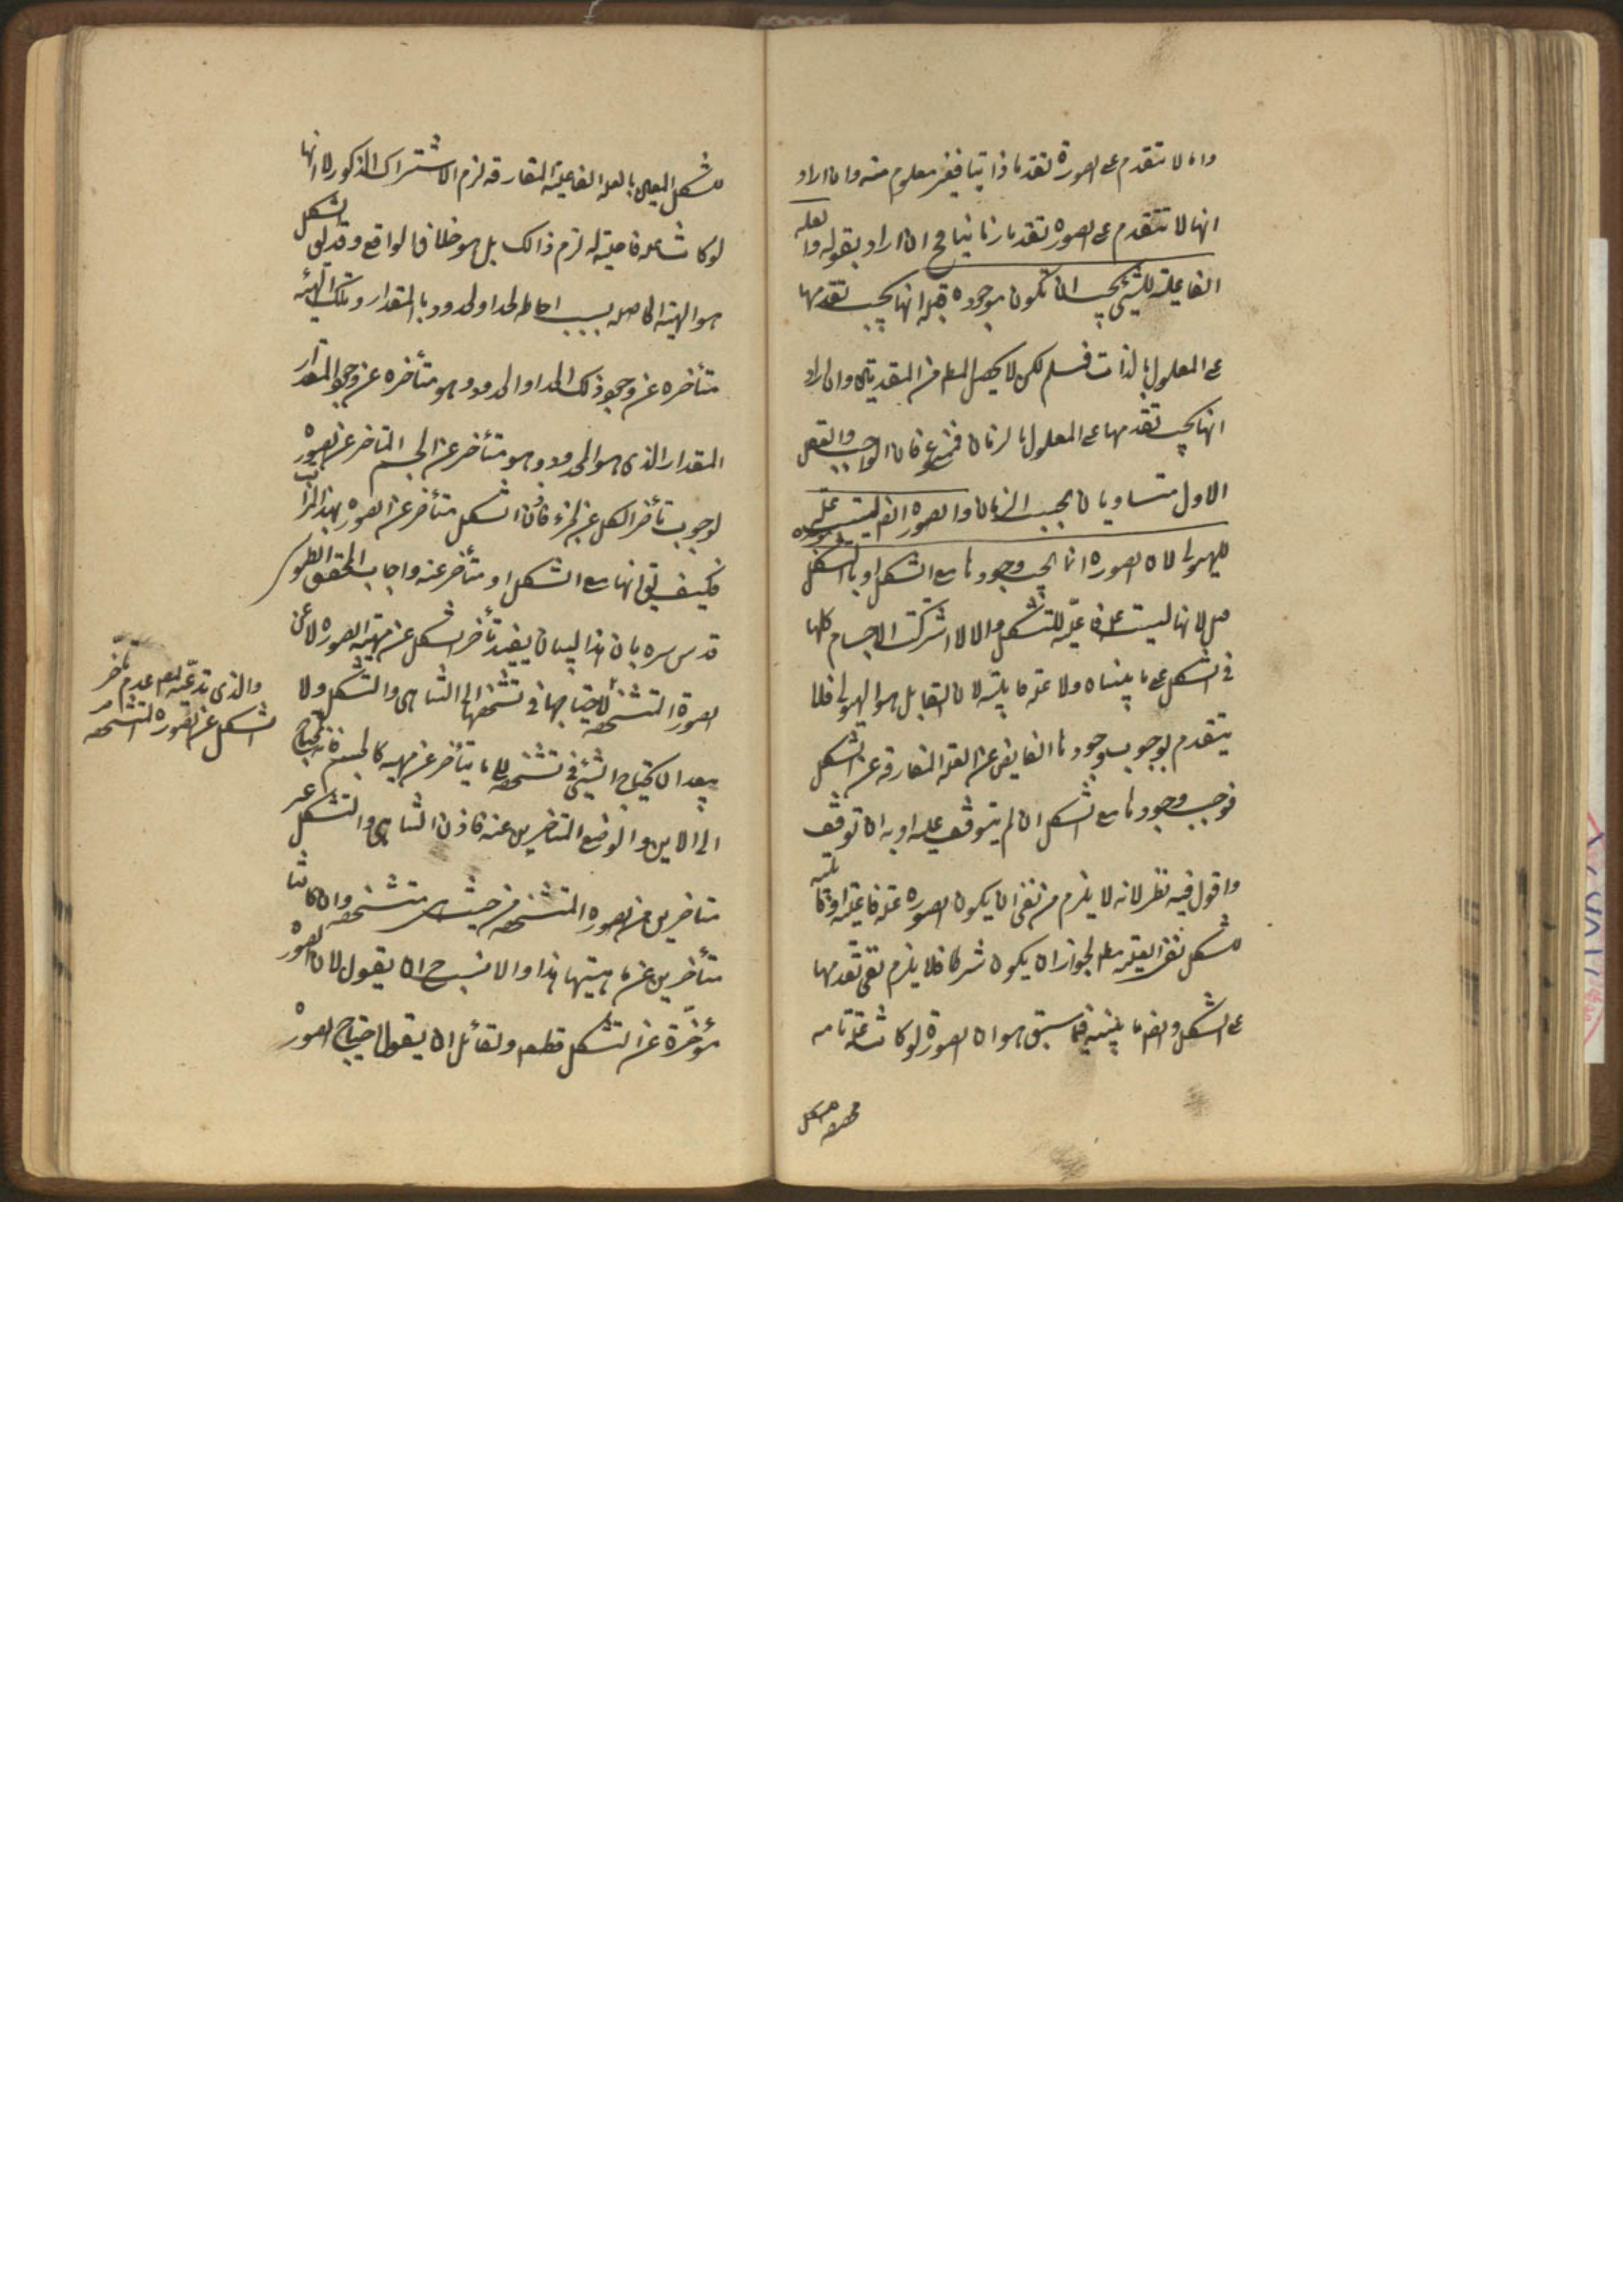 وانها لا تتقدم على الصورة تقدما ذاتيا فغير معلوم منه وان اراد
انها لا تتقدم على الصورة تقدما زمانيا فح ان اراد بقوله والعلة
الفاعلية للشيء يجب ان تكون موجودة قبله انها يجب تقدمها
على المعلول بالذات فمسلم لكن لا يحصل المط من المقدمتين وان اراد
انها يجب تقدمها على المعلول بالزمان فممنوع فان الواجب والعقل
الاول متساويان بحسب الزمان والصورة ايض ليست علة
للهيولى لان الصورة انما يجب وجودها مع الشكل او بالشكل
لانها ليست علة فاعلية للشكل والا لاشتركت الاجسام كلها
في الشكل على ما بيناه ولا علة قابلية لان القابل هو الهيولى فلا
يتقدم بوجوب وجودها الفايض عن العلة المفارقة عن الشكل
فوجب وجودها مع الشكل ان لم يتوقف عليه او به ان توقف
واقول فيه نظر لانه لا يلزم من نفي ان يكون الصورة علة فاعلية او قابلية
للشكل نفي العلية مط لجواز ان يكون شرطا فلا يلزم نفي تقدمها
على الشكل وايض ما بينه فيما سبق هو ان الصورة لو كانت علة تامة
للشكل المعين بالعلة الفاعلية المفارقة لزم الاشتراك المذكور لا انها
لو كانت علة فاعلية له لزم ذالك بل هو خلاف الواقع وقد يق الشكل
هو الهيئة الحاصلة بسبب احاطة الحد او الحدود بالمقدار وتلك الهيئة
متأخرة عن وجود ذلك الحد او الحدود وهو متأخرة عن وجود المقدار
المقدار الذي هو المحدود وهو متأخر عن الجسم المتاخر عن الصورة
لوجوب تأخر الكل عن الجزء فاذن الشكل متأخر عن الصورة بهذه المراتب
فكيف يق انها مع الشكل او متأخر عنه واجاب المحقق الطوسي
قدس سره بان هذا البيان يفيد تأخر الشكل عن مهية الصورة لا عن
الصورة المتشخصة لاحتياجها في تشخصها الى التناهي والتشكل ولا
يبعد ان يحتاج الشيء في تشخصه الى ما يتأخر عن مهيته كالجسم فانه يحتاج
الى الاين والوضع المتاخرين عنه فاذن التناهي والتشكل غير
متاخرين من الصورة المتشخصة من حيث هي متشخصة وان كانتا
متأخرين عن ماهيتها هذا والانسب ح ان يقول لان الصورة
مؤخرة عن التشكل قطعا ولقائل ان يقول احتياج الصورة
والذي ندعيه هو عدم تأخر
الشكل عن الصورة المتشخصة